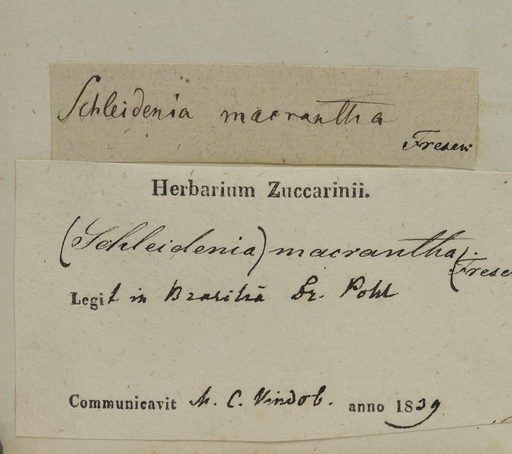 Schleidenia macrantha
Fresen
Herbarium Zuccarinii.
(Schleidenia) macrantha (Frese
Legit in Brasiliâ Dr. Pohl
Communicavit M. C. Vindob. anno 1839